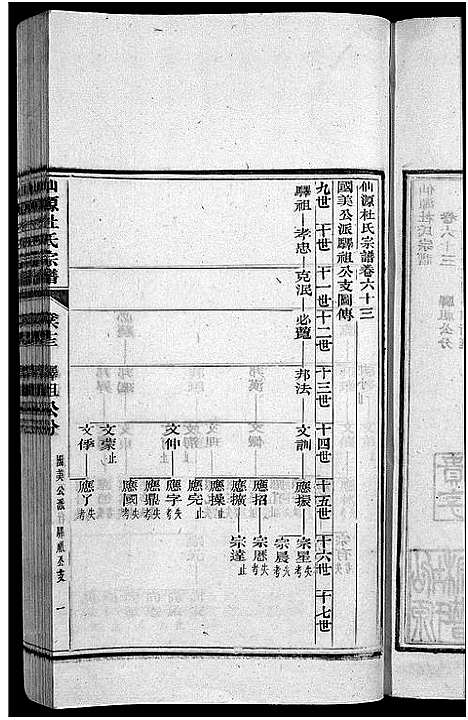 仙源杜氏宗譜卷六十三
國美公派驛祖公支圖傳
九世 十世 十一世 十二世 十三世 十四世 十五世 十六世 十七世
驛祖 孝忠 克泯 必賢 邦法 文訓 應振 宗星失考
宗晨失考
應招 宗曆失考
應擴 宗達止
應操止
應完止
文仲 應字失考
應鼎失考
應國失考
文蒙止
文侼 應了失考
仙源杜氏宗譜 驛祖公分
國美公派 驛祖公支 一
仙源杜氏宗譜
卷六十三 驛祖公分